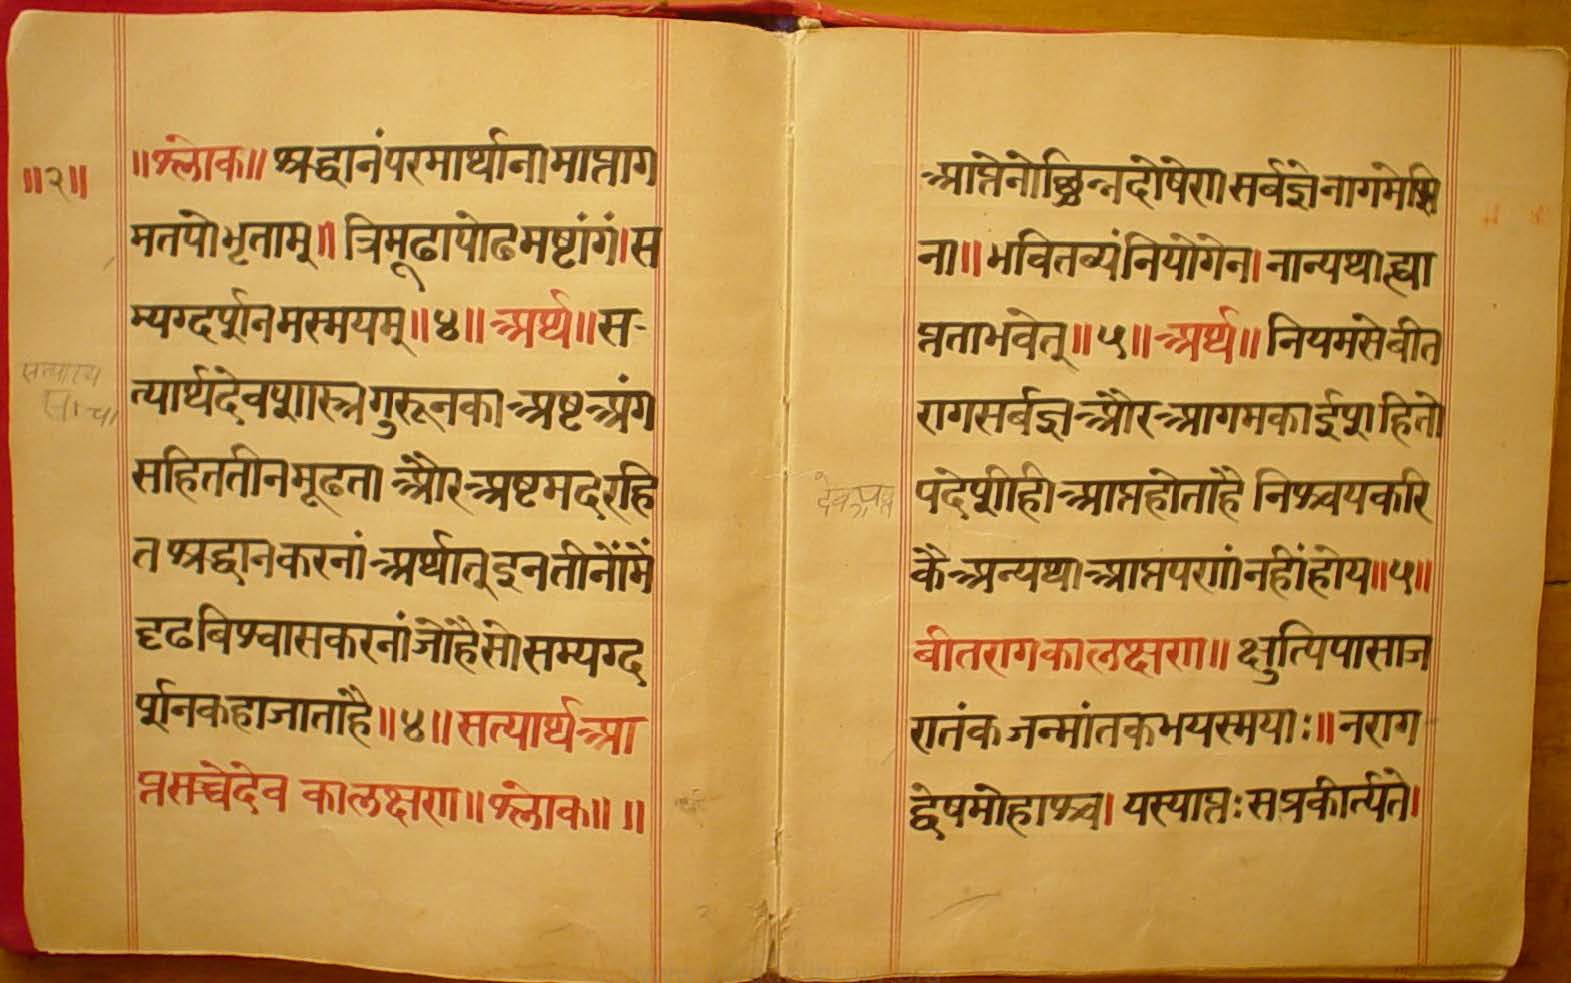 ॥२॥
॥श्लोक॥ श्रद्धानंपरमार्थानामाप्ताग
मतपोभृताम्॥ त्रिमूढापोढमष्टांगं।स
म्यग्दर्शनमस्मयम्॥४॥ अर्थ॥ स-
त्यार्थदेवशास्त्रगुरूनका अष्टअंग
सहिततीनमूढता और अष्टमदरहि
त श्रद्धानकरनां अर्थात् इनतीनोंमें
दृढबिश्वासकरनांजोहैसो सम्यग्द
र्शनकहाजाताहै॥४॥ सत्यार्थआ
प्तसच्चेदेव कालक्षण॥ श्लोक॥ ॥
आप्तेनोछिन्नदोषेण। सर्वज्ञेनागमेशि
ना॥ भवितव्यंनियोगेन। नान्यथाह्या
प्तताभवेत्॥५॥ अर्थ॥ नियमसेबीत
रागसर्वज्ञ और आगमकाईशहितो
पदेशीही आप्तहोताहै निश्चयकरि
कै अन्यथा आप्तपणांनहींहोय॥५॥
बीतरागकालक्षण॥ क्षुत्पिपासाज
रातंक जन्मांतकभयस्मयाः॥ नराग
द्वेषमोहाश्च। यस्याप्तः सप्रकीर्त्यते।